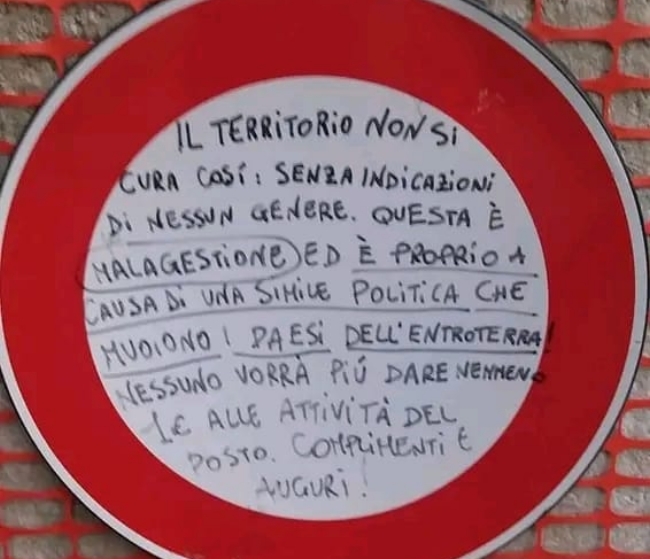 IL TERRITORIO NON SI
CURA COSÍ: SENZA INDICAZIONI
DI NESSUN GENERE. QUESTA È
MALAGESTIONE ED È PROPRIO A
CAUSA DI UNA SIMILE POLITICA CHE
MUOIONO I PAESI DELL'ENTROTERRA!
NESSUNO VORRÀ PIÚ DARE NEMMENO
1€ ALLE ATTIVITÀ DEL
POSTO. COMPLIMENTI E
AUGURI!